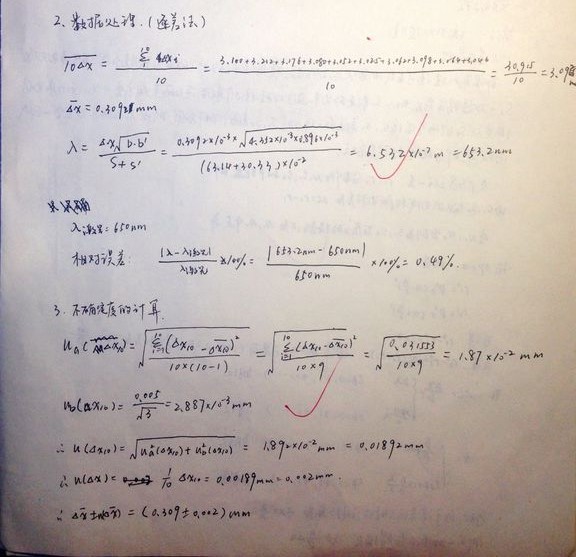 2. 数据处理. (逐差法)
10Δx̄ = Σ 10Δxi / 10 = 3.100+3.212+3.176+3.080+3.052+3.025+3.062+3.098+3.064+3.046 / 10 = 30.915 / 10 = 3.092
Δx̄ = 0.3092 mm
λ = Δx√(b·b') / (S+S') = 0.3092×10⁻³×√(4.352×10⁻³×0.896×10⁻³) / ((63.14+30.33)×10⁻²) = 6.532×10⁻⁷ m = 653.2nm
λ激光 = 650nm
相对误差: |λ-λ激光| / λ激光 ×100% = |653.2nm-650nm| / 650nm ×100% = 0.49%.
3. 不确定度的计算.
uₐ(Δx₁₀) = √(Σ(Δx₁₀-Δx̄₁₀)² / 10×(10-1)) = √(Σ(Δx₁₀-Δx̄₁₀)² / 10×9) = √(0.031553 / 10×9) = 1.87×10⁻² mm
u_b(Δx₁₀) = 0.005 / √3 = 2.887×10⁻³ mm
∴ u(Δx₁₀) = √(uₐ²(Δx₁₀)+u_b²(Δx₁₀)) = 1.892×10⁻² mm = 0.01892mm
∴ u(Δx) = 1/10 Δx₁₀ = 0.00189mm = 0.002mm.
∴ Δx̄±u(Δx̄) = (0.309±0.002) mm